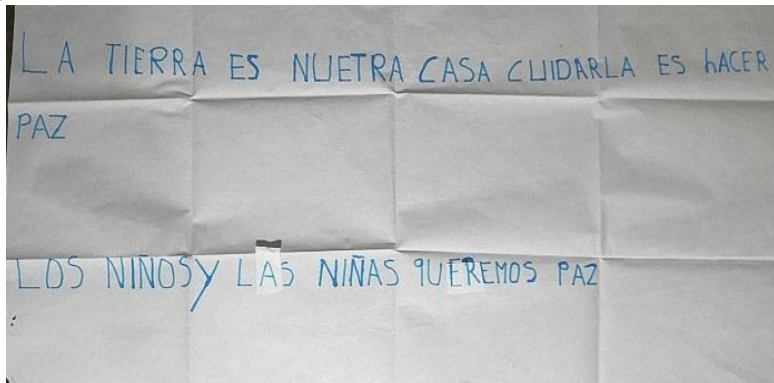 LA TIERRA ES NUETRA CASA CUIDARLA ES hACER
PAZ
LOS NIÑOS Y LAS NIÑAS QUEREMOS PAZ